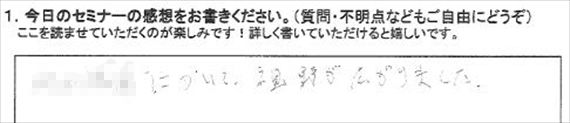 1. 今日のセミナーの感想をお書きください。(質問・不明点などもご自由にどうぞ)
ここを読ませていただくのが楽しみです！詳しく書いていただけると嬉しいです。
について、視野が広がりました。